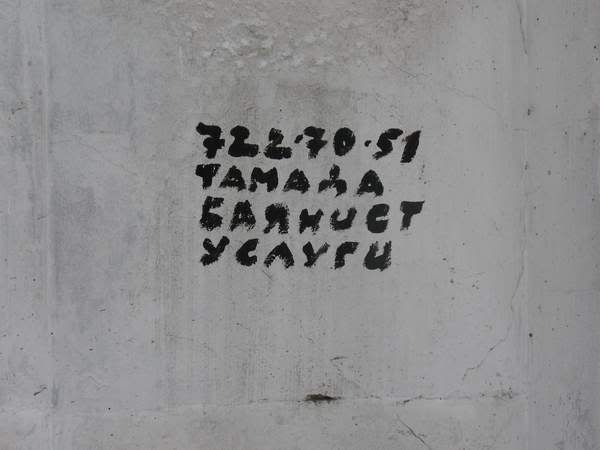 722·70·51
ТАМАДА
БАЯНИСТ
УСЛУГИ